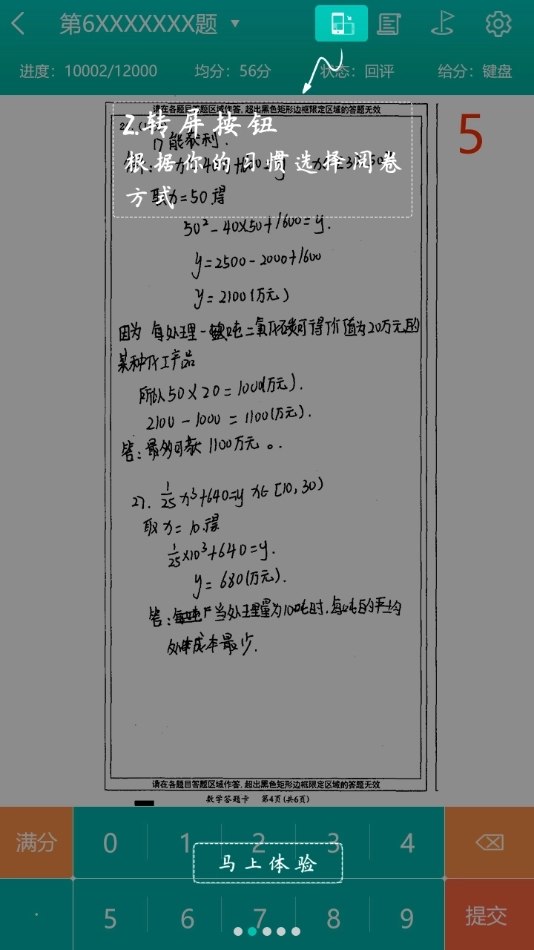 第6XXXXXXX题
进度：10002/12000 均分：56分 状态：回评 给分：键盘
请在各题目答题区域作答，超出黑色矩形边框限定区域的答题无效
2.转屏按钮
可能获利.
根据你的习惯选择阅卷
方式
5
取x=50得
50²-40×50+1600=y.
y=2500-2000+1600
y=2100(万元)
因为 每处理一吨二氧化碳可得价值为20万元的
某种化工产品
所以50×20=1000(万元).
2100-1000=1100(万元).
答：最多可获1100万元。.
2). 1/25 x³+640=y x∈[10,30)
取x=10.得
1/25×10³+640=y.
y=680(万元).
答：当处理量为10吨时.每吨的平均
处理成本最少.
请在各题目答题区域作答，超出黑色矩形边框限定区域的答题无效
数学答题卡 第4页(共6页)
满分 0 1 2 3 4
马上体验
· 5 6 7 8 9 提交